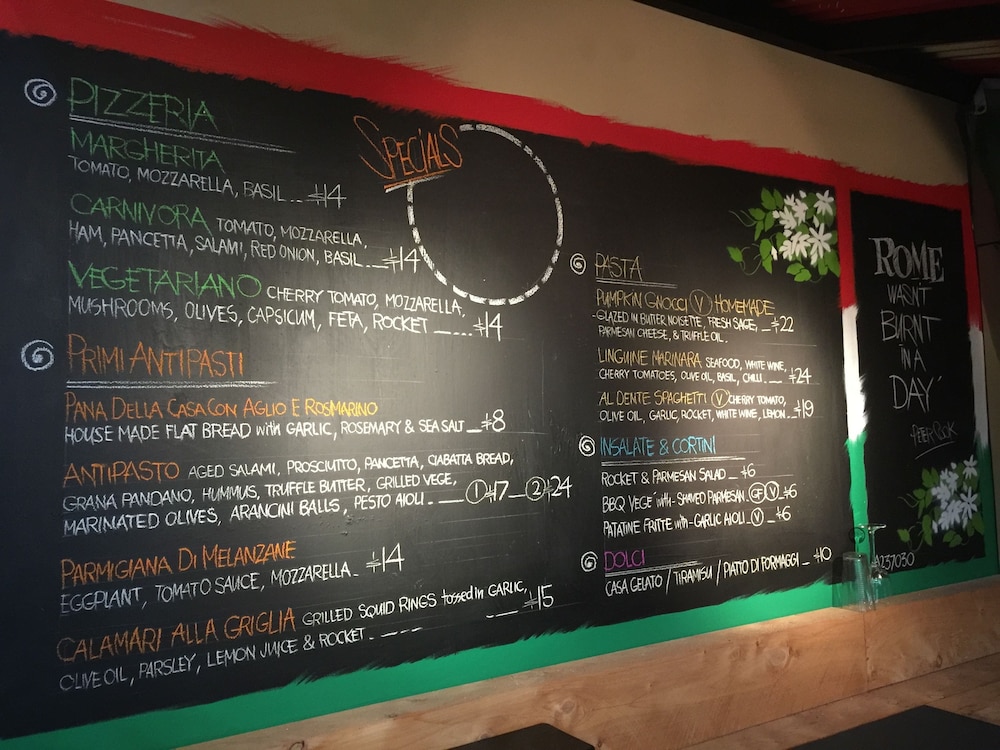 PIZZERIA
MARGHERITA
TOMATO, MOZZARELLA, BASIL $14
CARNIVORA TOMATO, MOZZARELLA,
HAM, PANCETTA, SALAMI, RED ONION, BASIL $14
VEGETARIANO CHERRY TOMATO, MOZZARELLA,
MUSHROOMS, OLIVES, CAPSICUM, FETA, ROCKET $14
PRIMI ANTIPASTI
PANA DELLA CASA CON AGLIO E ROSMARINO
HOUSE MADE FLAT BREAD with GARLIC, ROSEMARY & SEA SALT $8
ANTIPASTO AGED SALAMI, PROSCIUTTO, PANCETTA, CIABATTA BREAD,
GRANA PANDANO, HUMMUS, TRUFFLE BUTTER, GRILLED VEGE,
MARINATED OLIVES, ARANCINI BALLS, PESTO AIOLI 1 $17 2 $24
PARMIGIANA DI MELANZANE
EGGPLANT, TOMATO SAUCE, MOZZARELLA $14
CALAMARI ALLA GRIGLIA GRILLED SQUID RINGS tossed in GARLIC,
OLIVE OIL, PARSLEY, LEMON JUICE & ROCKET $15
SPECIALS
PASTA
PUMPKIN GNOCCI V HOMEMADE
-GLAZED IN BUTTER NOISETTE, FRESH SAGE, $22
PARMESAN CHEESE, & TRUFFLE OIL.
LINGUINE MARINARA SEAFOOD, WHITE WINE,
CHERRY TOMATOES, OLIVE OIL, BASIL, CHILLI $24
AL DENTE SPAGHETTI V CHERRY TOMATO,
OLIVE OIL, GARLIC, ROCKET, WHITE WINE, LEMON $19
INSALATE & CORTINI
ROCKET & PARMESAN SALAD $6
BBQ VEGE' with - SHAVED PARMESAN GF V $6
PATATINE FRITTE with - GARLIC AIOLI V $6
DOLCI
CASA GELATO / TIRAMISU / PIATTO DI FORMAGGI $10
ROME
WASN'T
BURNT
IN A
DAY'